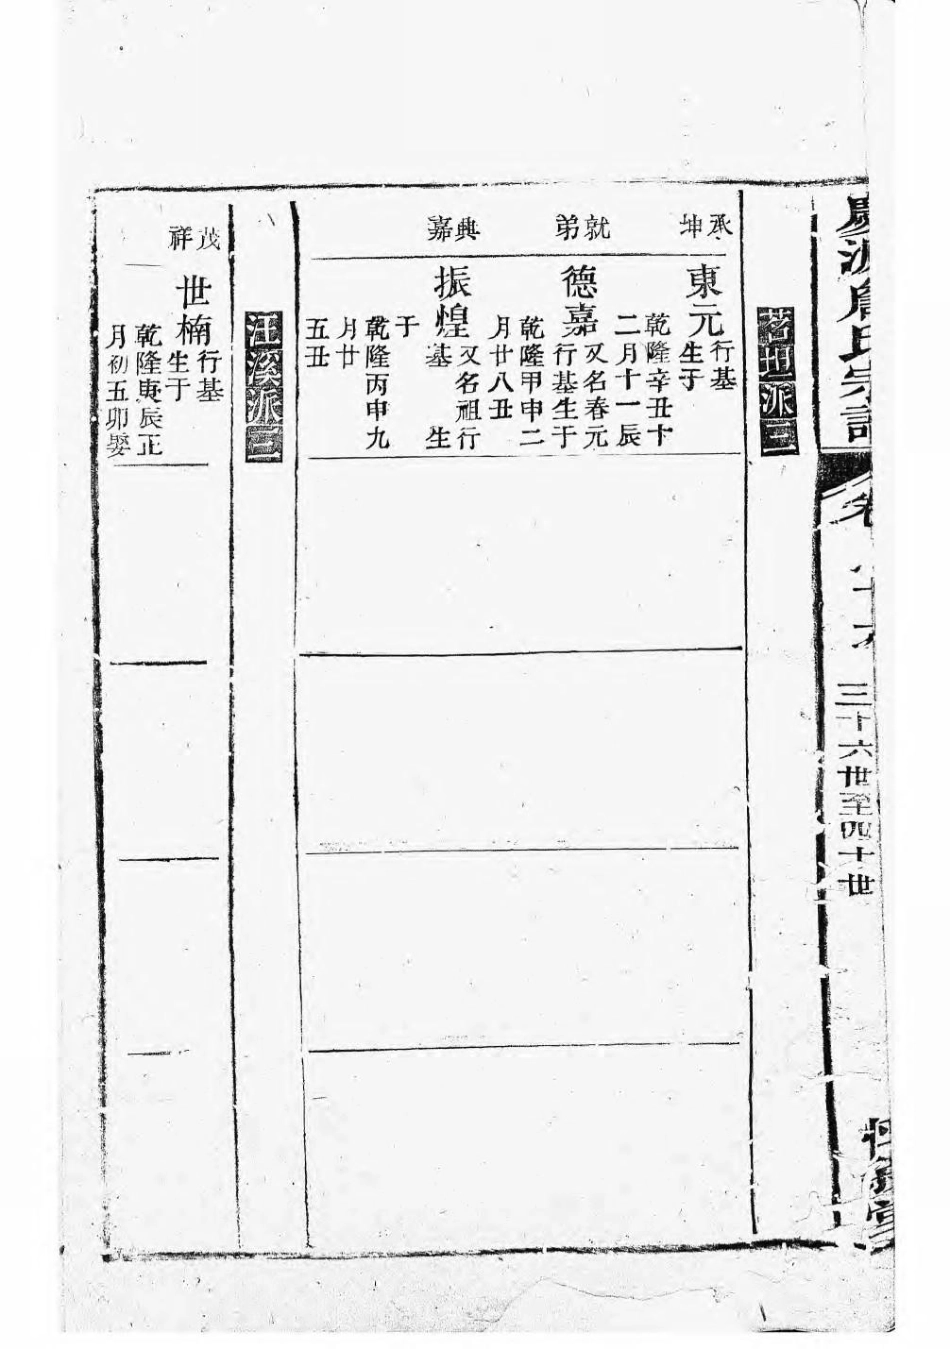 慶源詹氏宗譜
卷
三十六世至四十世
派三
承
坤
東元
行基
生于
乾隆辛丑十
二月十一辰
就
弟
德嘉
又名春元
行基生于
乾隆甲申二
月廿八丑
興
嘉
振煌
又名祖行
基 生
于
乾隆丙申九
月廿
五丑
汪溪派三
茂
祥
世楠
行基
生于
乾隆庚辰正
月初五卯娶